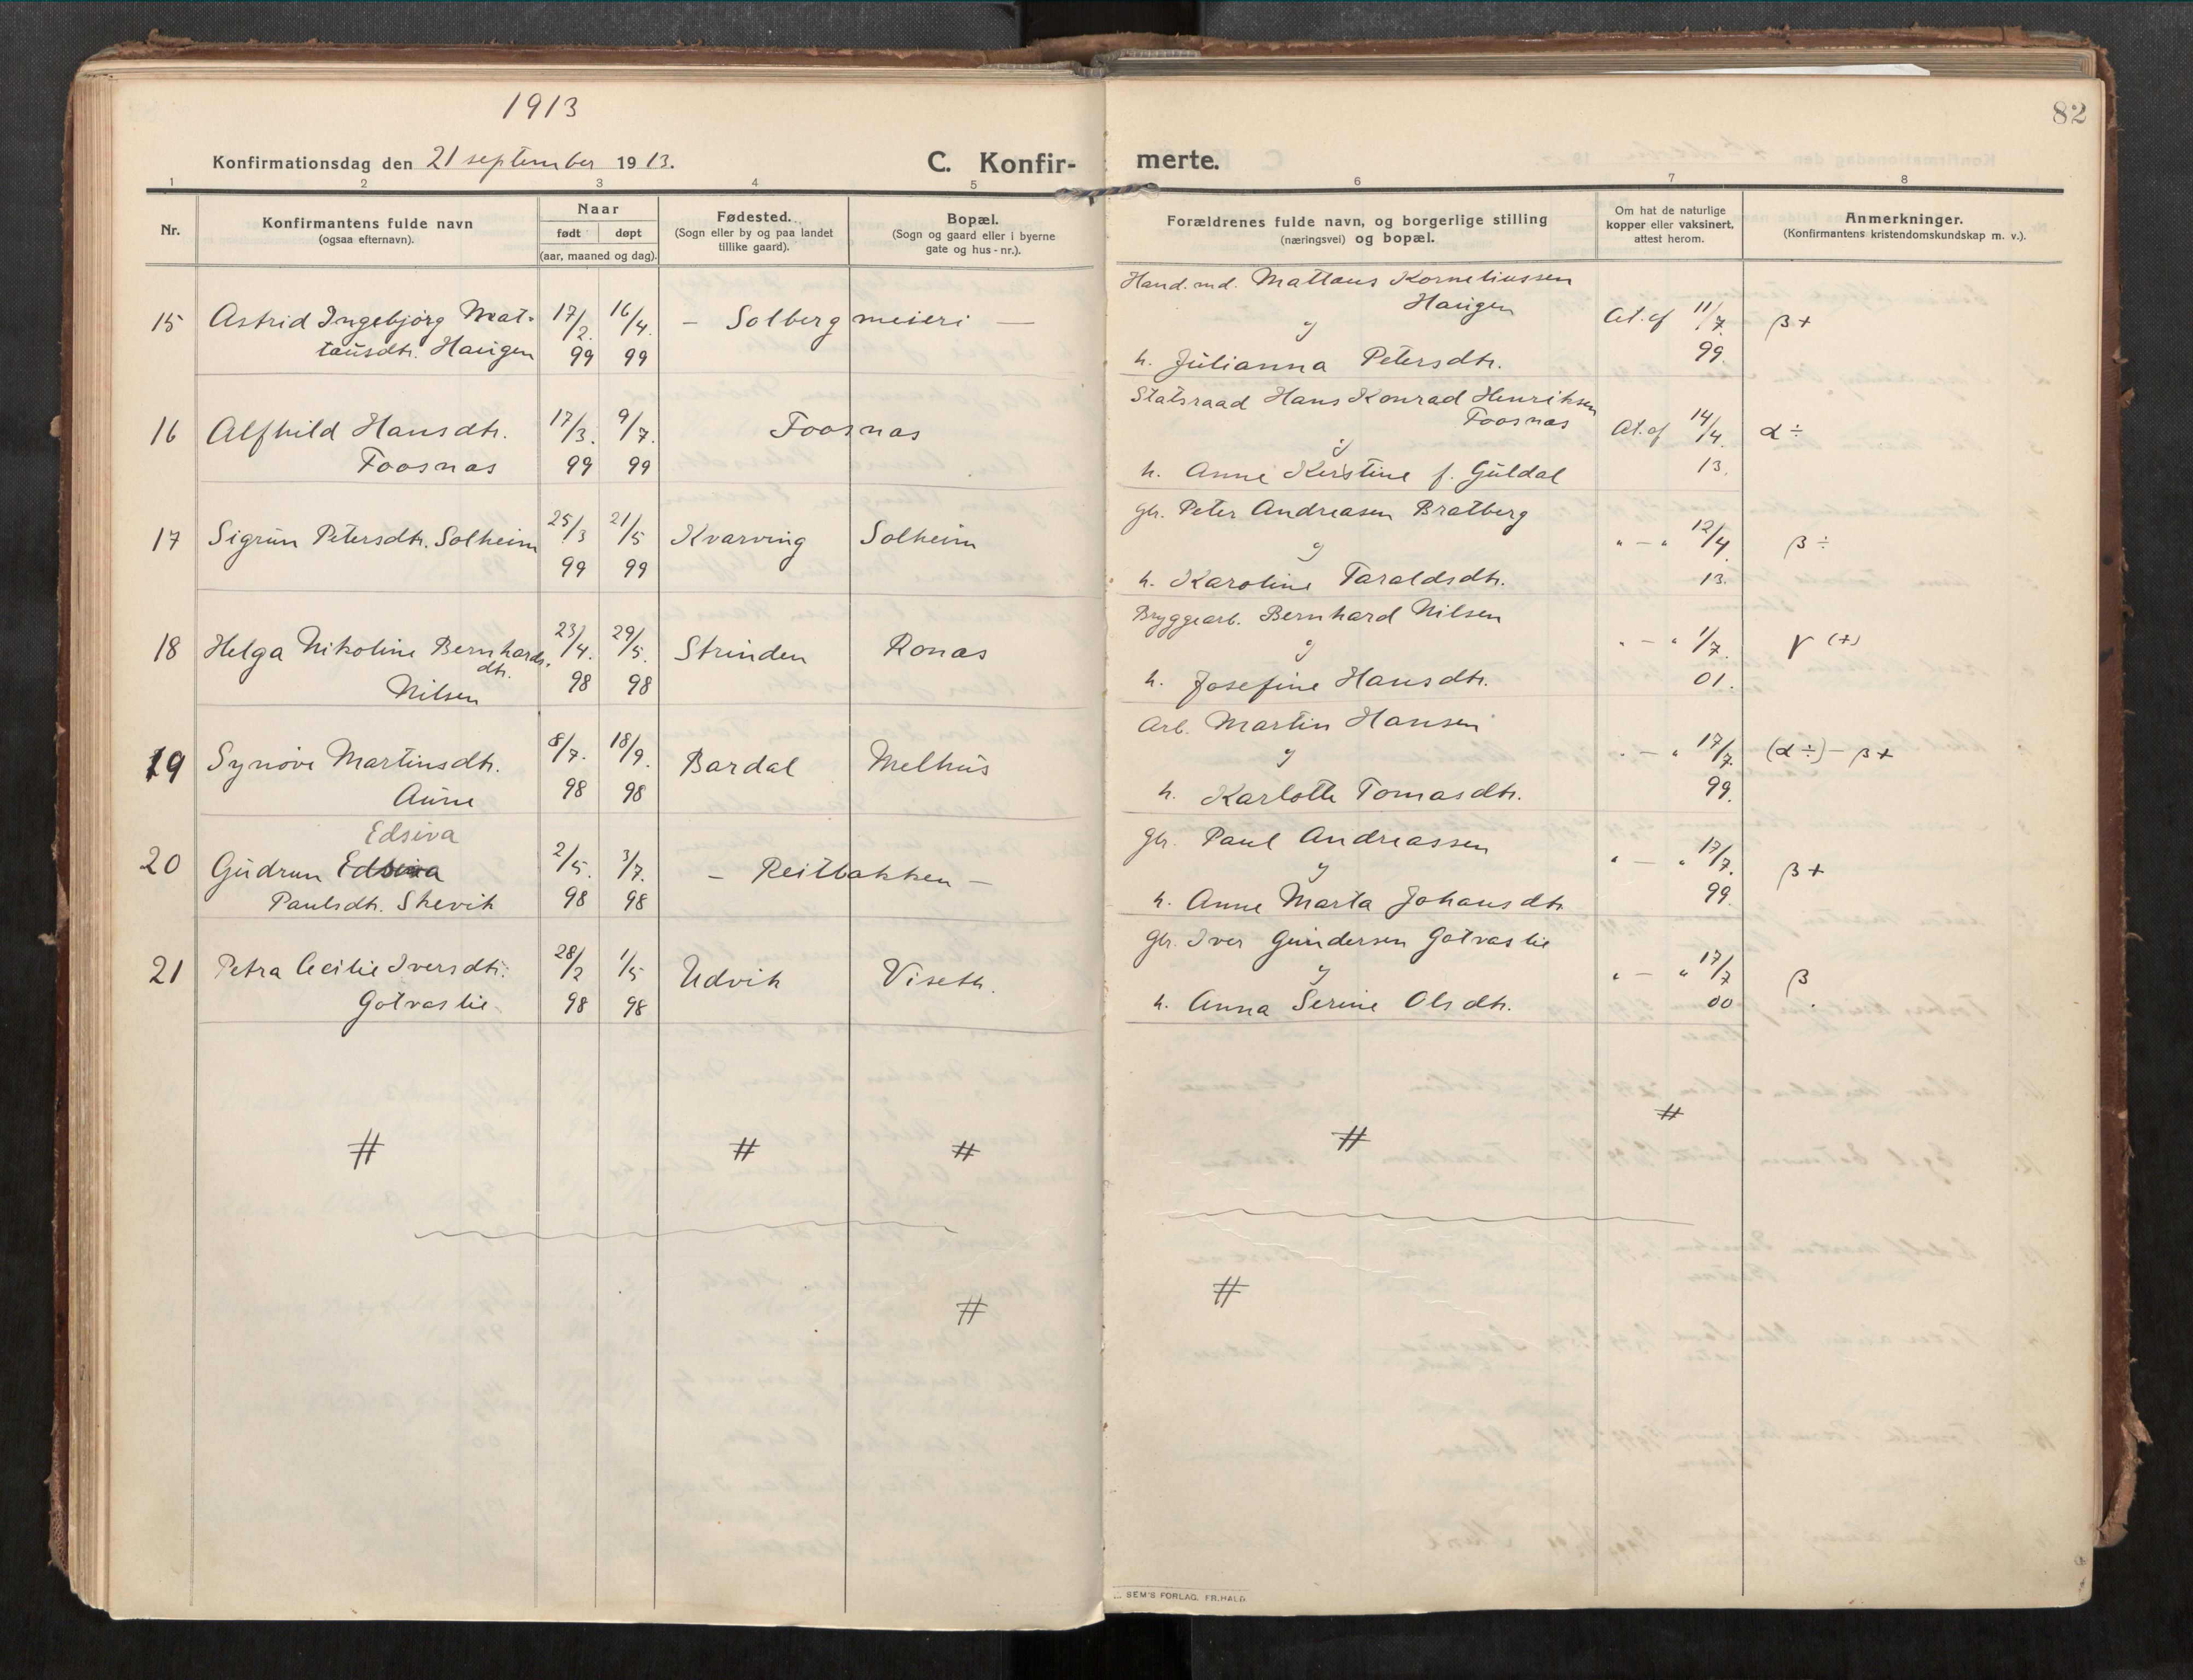 1913
82
Konfirmationsdag den 21 september 1913.
C. Konfir-
merte.
1 2 3 4 5 6 7 8
Nr.
Konfirmantens fulde navn
(ogsaa efternavn).
Naar
født døpt
(aar, maaned og dag).
Fødested.
(Sogn eller by og paa landet
tillike gaard).
Bopæl.
(Sogn og gaard eller i byerne
gate og hus-nr.).
Forældrenes fulde navn, og borgerlige stilling
(næringsvei) og bopæl.
Om hat de naturlige
kopper eller vaksinert,
attest herom.
Anmerkninger.
(Konfirmantens kristendomskundskap m. v.).
Hand. md. Mattaus Korneliussen
Haugen
15 Astrid Ingebjørg Mat- 17/2. 16/4. — Solberg meieri — og At. af 11/7. β+
tausdtr. Haugen 99 99 h. Julianna Petersdtr. 99.
Statsraad Hans Konrad Henriksen
Foosnæs
16 Alfhild Hansdtr. 17/3. 9/7. Foosnæs og At. af 14/4. α÷
Foosnæs 99 99 h. Anne Kirstine f. Guldal 13.
Gbr. Peter Andreasen Bratberg
17 Sigrun Petersdtr. Solheim 25/3 21/5 Kvarving Solheim og " — " 12/4. β÷
99 99 h. Karoline Taraldsdtr. 13.
Bryggearb. Bernhard Nilsen
18 Helga Nikoline Bernhards- 23/4. 29/5. Strinden Ronæs og " — " 1/7. γ (+)
dtr.
Nilsen 98 98 h. Josefine Hansdtr. 01.
Arb. Martin Hansen
19 Synøve Martinsdtr. 8/7. 18/9. Bardal Melhus og " — " 17/7. (α÷)— β+
Aune 98 98 h. Karlotte Tomasdtr. 99.
Edseva
Gbr. Paul Andreassen
20 Gudrun 2/5. 3/7. — Reitbakken — og " — " 17/7. β+
Paulsdtr. Skevik 98 98 h. Anne Marta Johansdtr 99.
Gbr. Iver Gundersen Gotvaslie
21 Petra Cecilie Iversdtr. 28/2 1/5 Udvik Viseth. og " — " 17/7 β
Gotvaslie 98 98 h. Anna Serine Olsdtr. 00
# # # # #
# #
SEM'S FORLAG, FR. HALD.